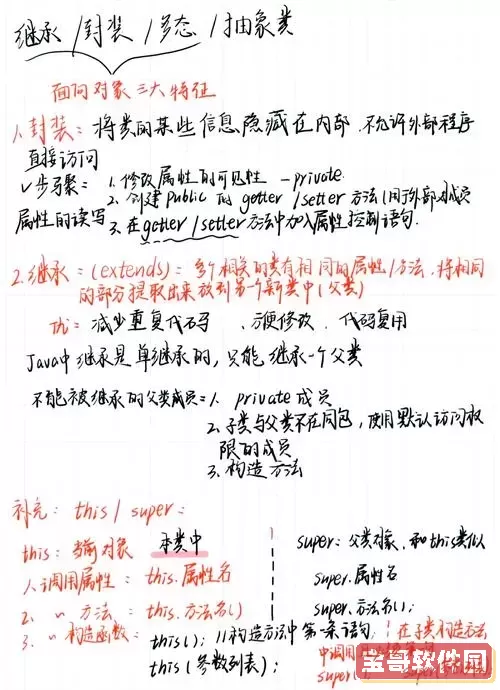 继承 / 封装 / 多态 / 抽象类
面向对象三大特征
1. 封装：将类的某些信息隐藏在内部，不允许外部程序
直接访问
√步骤：1. 修改属性的可见性 - private
2. 创建 public 的 getter / setter 方法 (用于外部对成员
属性的读写
3. 在 getter / setter 方法中加入属性控制语句.
2. 继承：(extends)：多个相关的类有相同的属性/方法，将相同
的部分提取出来放到另一个新类中 (父类)
优：减少重复代码、方便修改、代码复用
Java中继承是单继承的，只能继承一个父类
不能被继承的父类成员：1. private 成员
2. 子类与父类不在同包，使用默认访问权
限的成员
3. 构造方法
补充：this / super：
this：当前对象 本类中
super：父类对象，和this类似
1. 调用属性：this.属性名
super.属性名
2. 〃 方法：this.方法名()
super.方法名();
3. 〃 构造函数：this(); //构造方法中第一条语句
this (参数列表);
在子类构造方法
中调用
super(
宝哥软件网